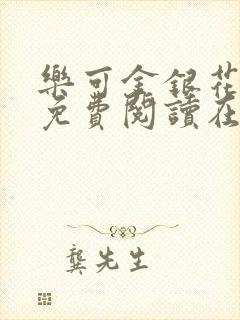 樂可金銀花
免費閱讀在
龔先生